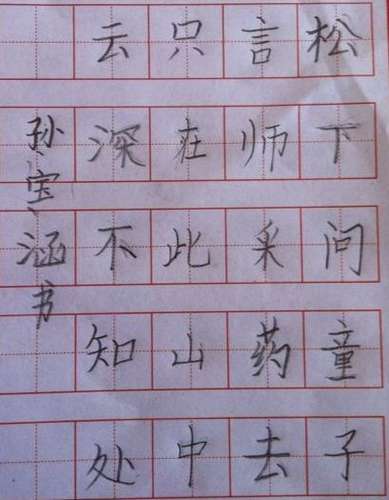 松下问童子
言师采药去
只在此山中
云深不知处
孙宝涵书